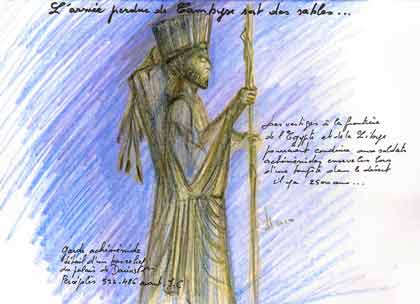 L'armée perdue de Cambyse sort des sables...
Des vestiges à la frontière
de l'Egypte et de la Libye
pourraient conduire aux soldats
achéménides ensevelis lors
d'une tempête dans le désert
il y a 2500 ans...
Garde achéménide
détail d'un bas relief
du palais de Darius 1er
Persépolis 522-486 avant J.C